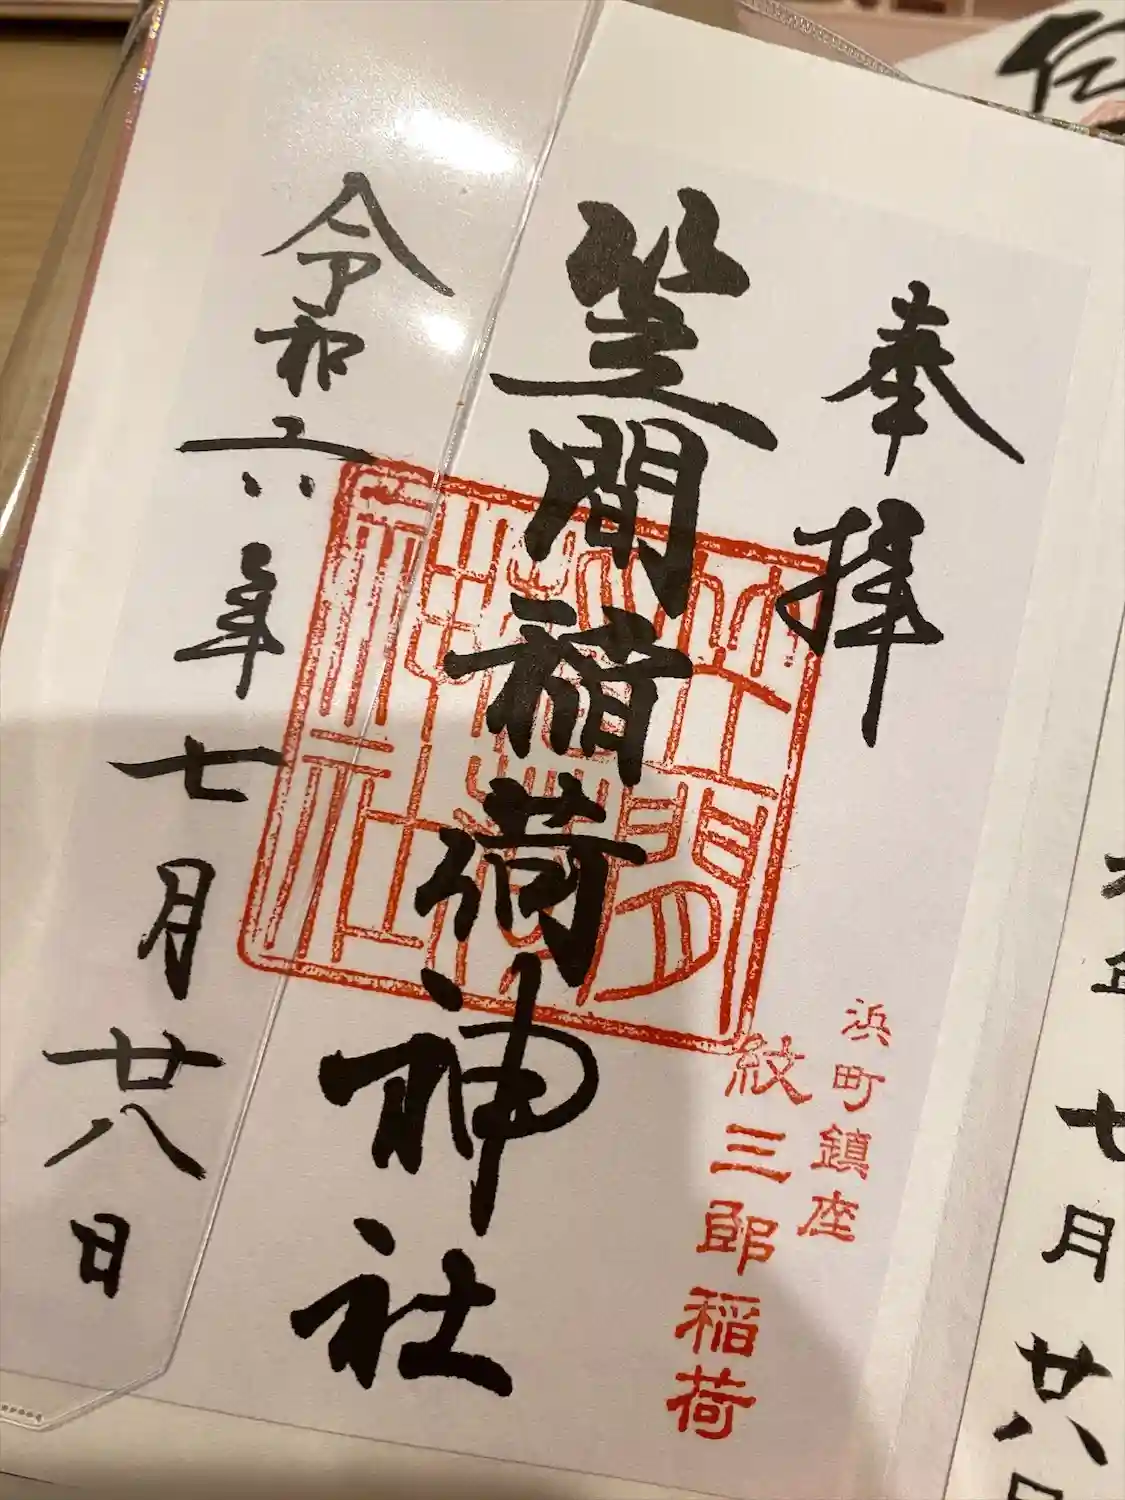 奉拝
浜町鎮座
紋三郎稲荷
笠間稲荷神社
笠間稲荷神社
令和六年七月廿八日
年七月廿八日